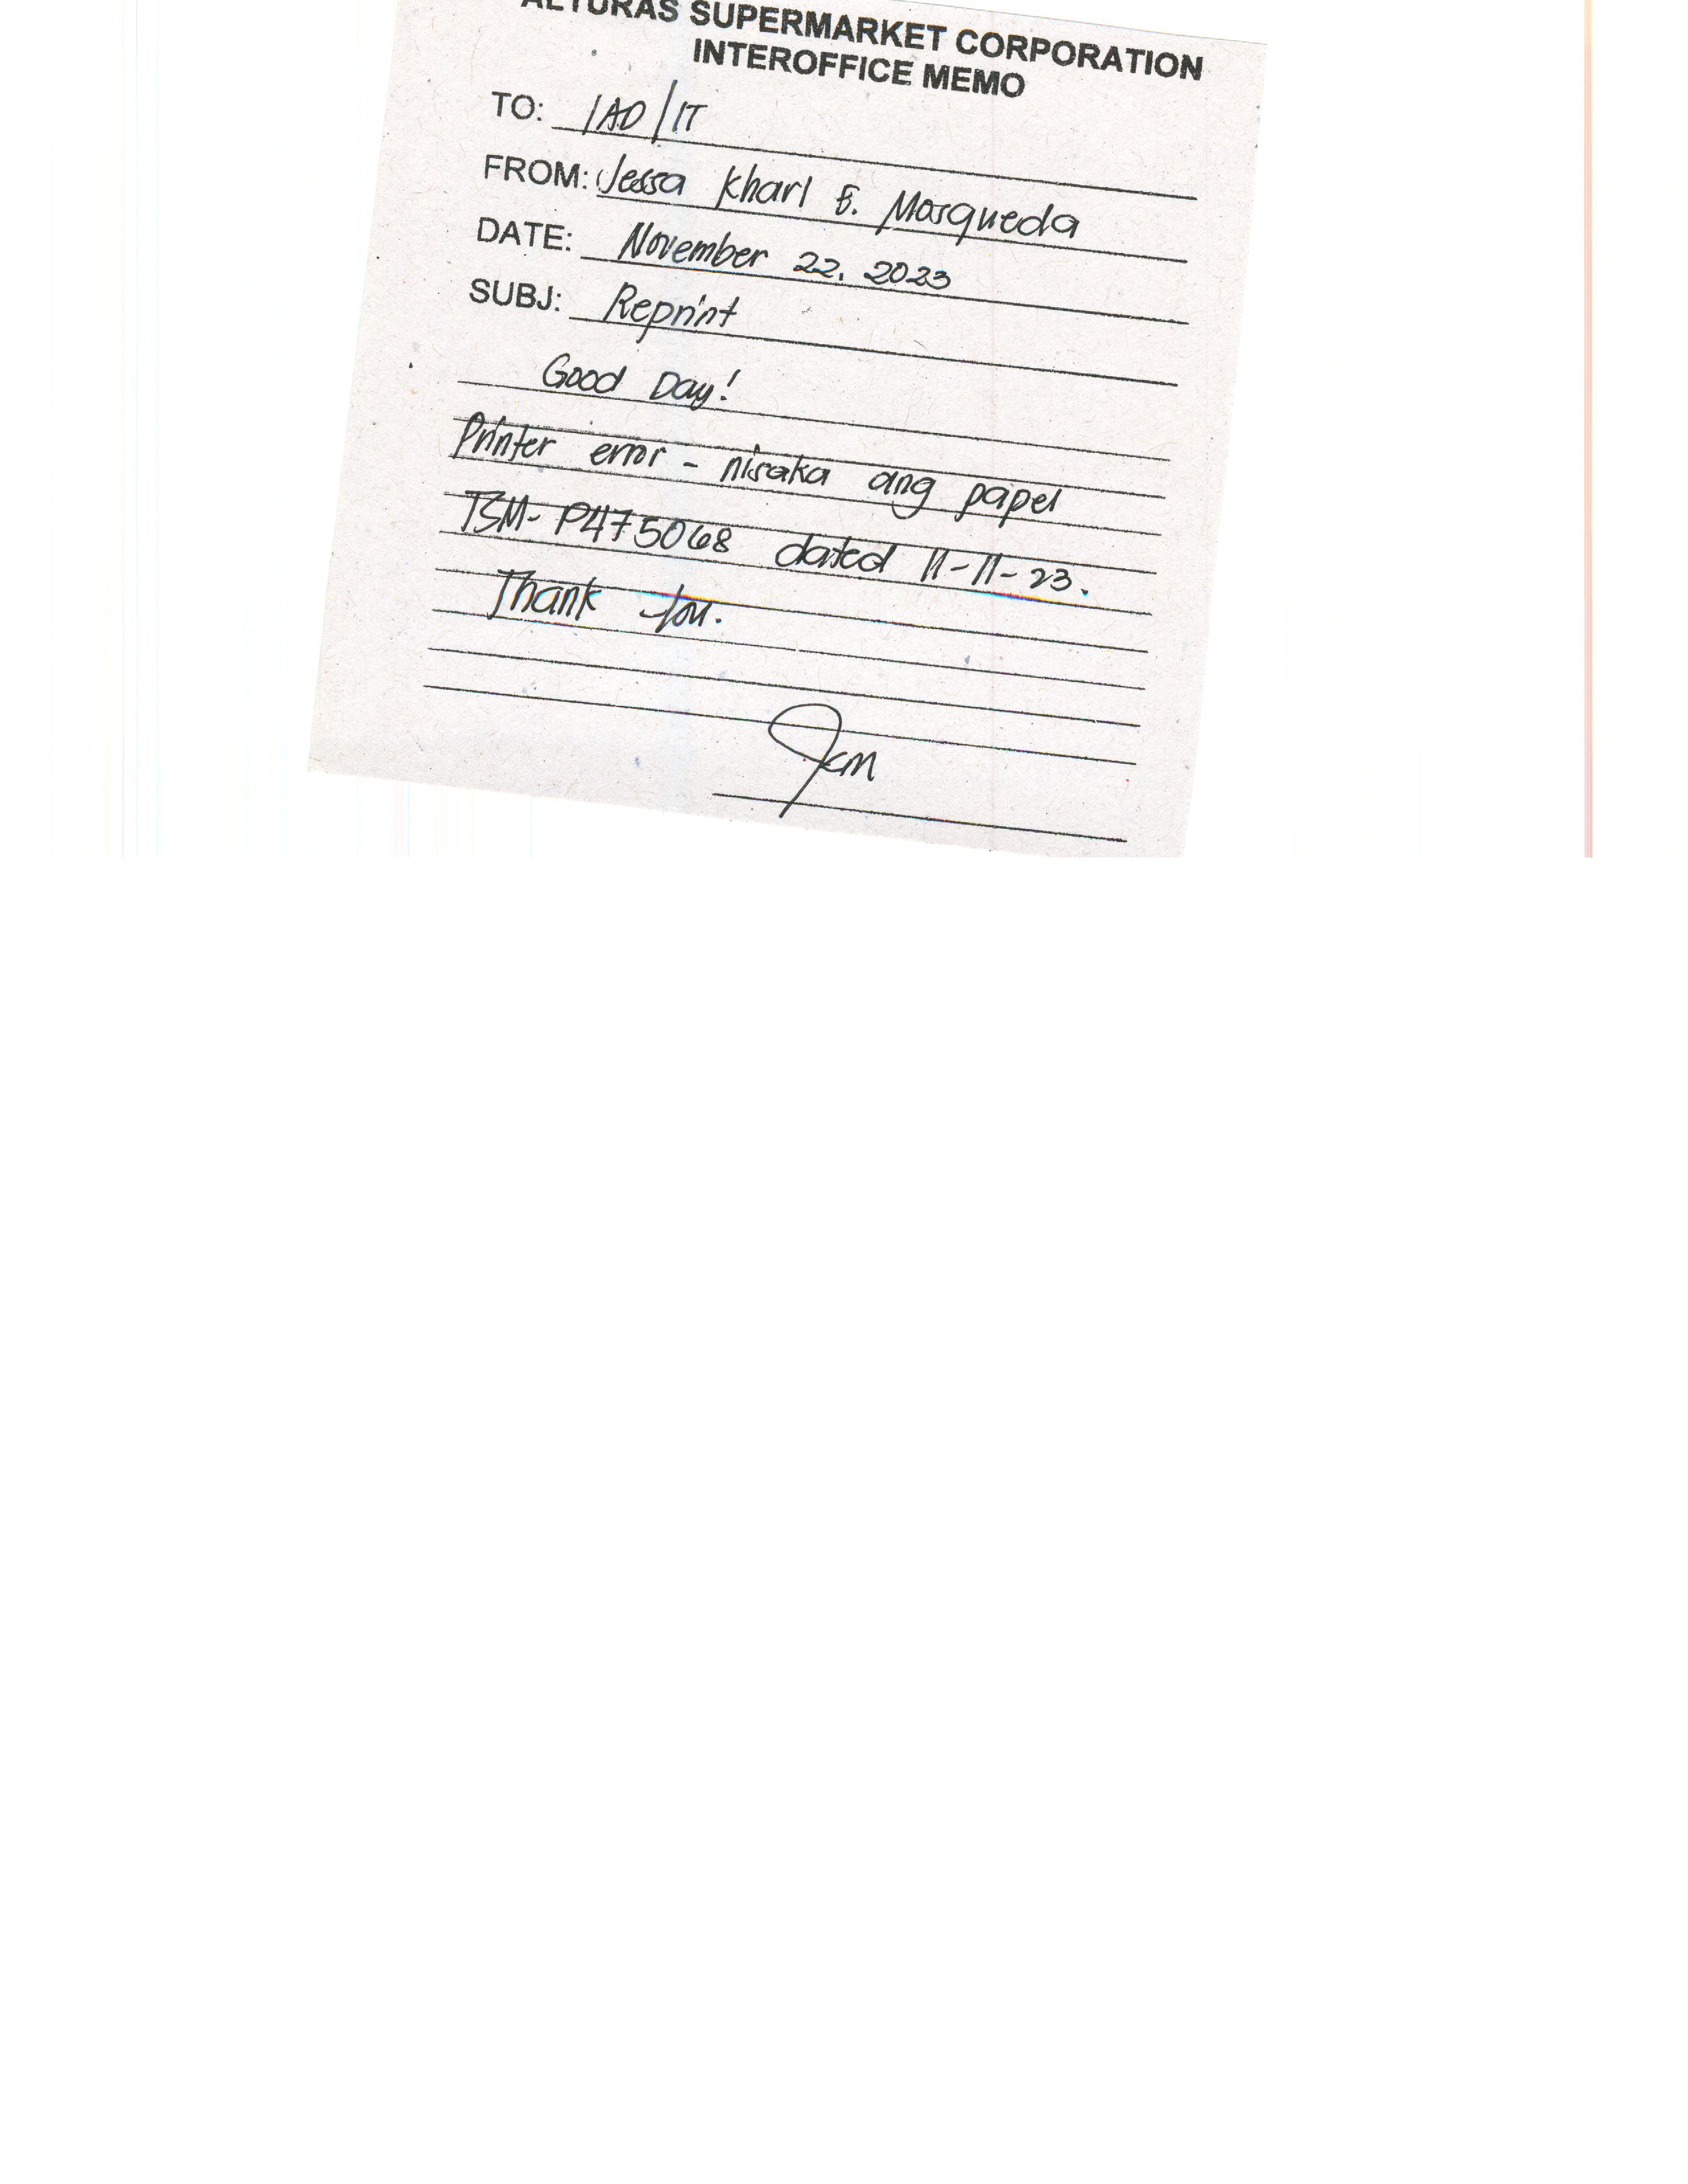 ALTURAS SUPERMARKET CORPORATION
INTEROFFICE MEMO
TO: IAD/IT
FROM: Jessa Kharl E. Mosqueda
DATE: November 22, 2023
SUBJ: Reprint
Good Day!
Printer error - nisaka ang papel
TSM- P475068 dated 11-11-23.
Thank You.
JKM